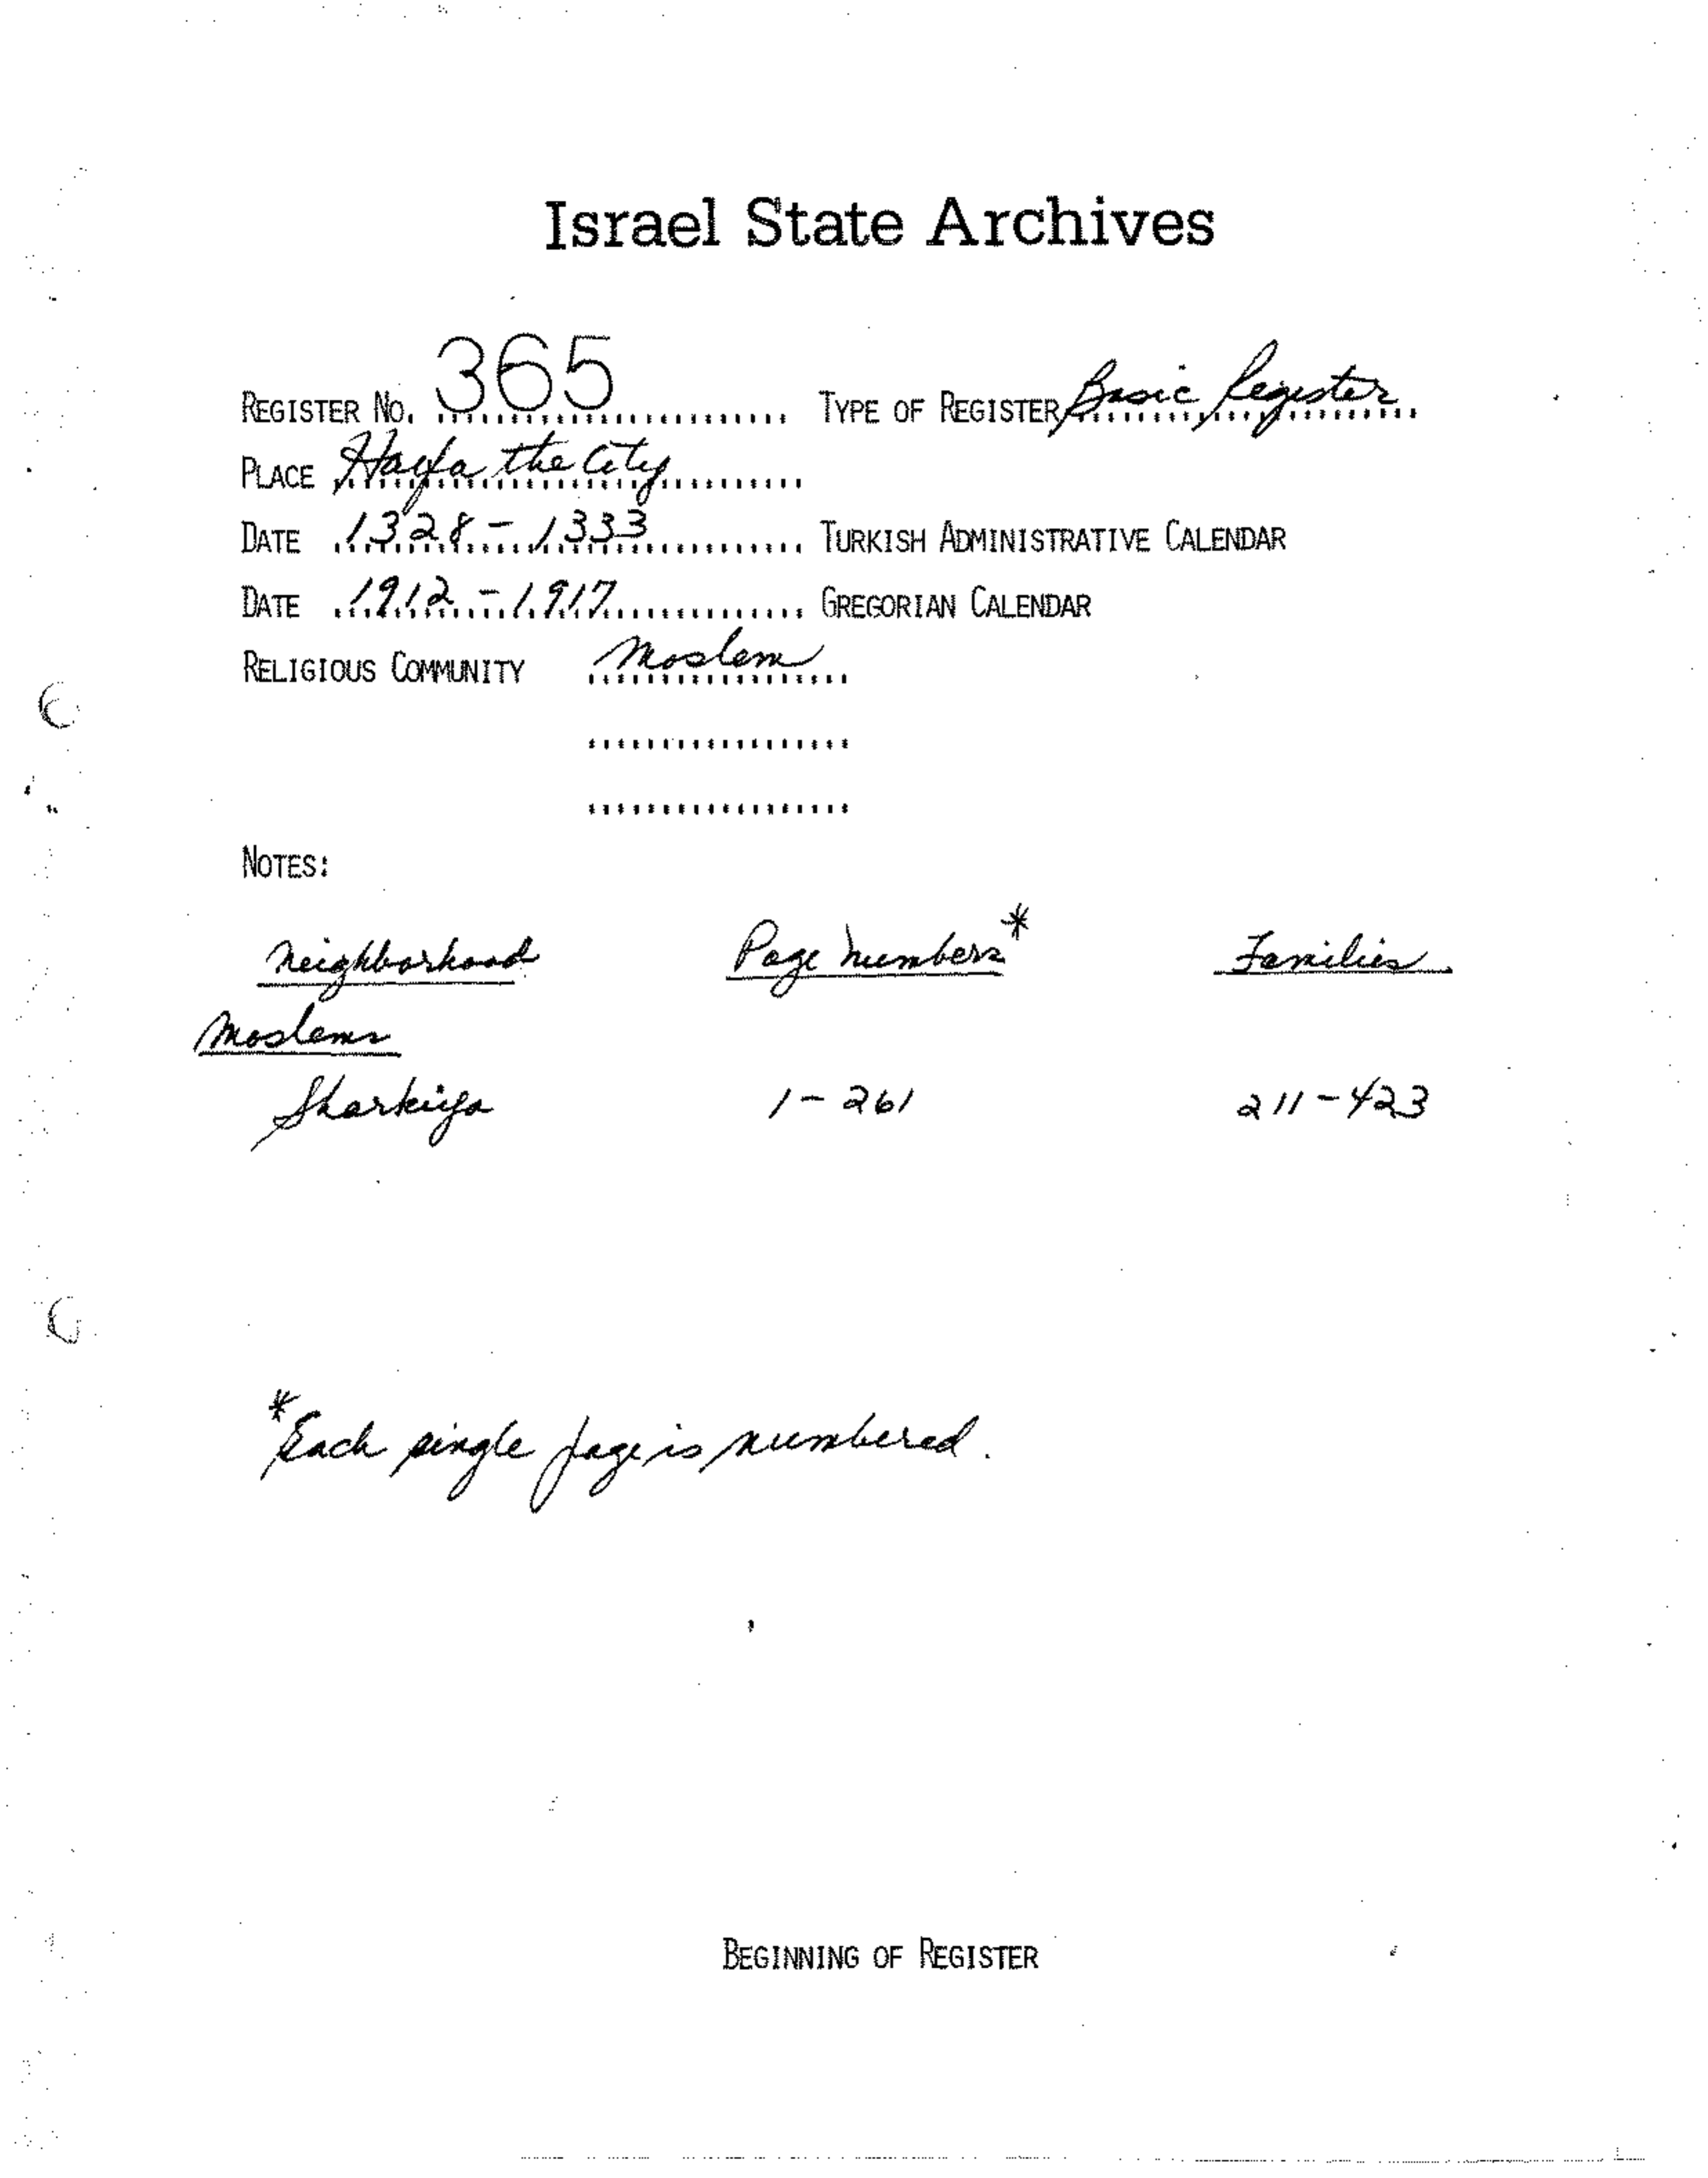 Israel State Archives
REGISTER NO. 365 TYPE OF REGISTER Basic Register
PLACE Hayfa the City
DATE 1328 - 1333 TURKISH ADMINISTRATIVE CALENDAR
DATE 1912 - 1917 GREGORIAN CALENDAR
RELIGIOUS COMMUNITY Moslem
NOTES:
Neighborhood Page Numbers* Families
Moslems
Sharkiya 1 - 261 211 - 423
*Each single page is numbered.
BEGINNING OF REGISTER